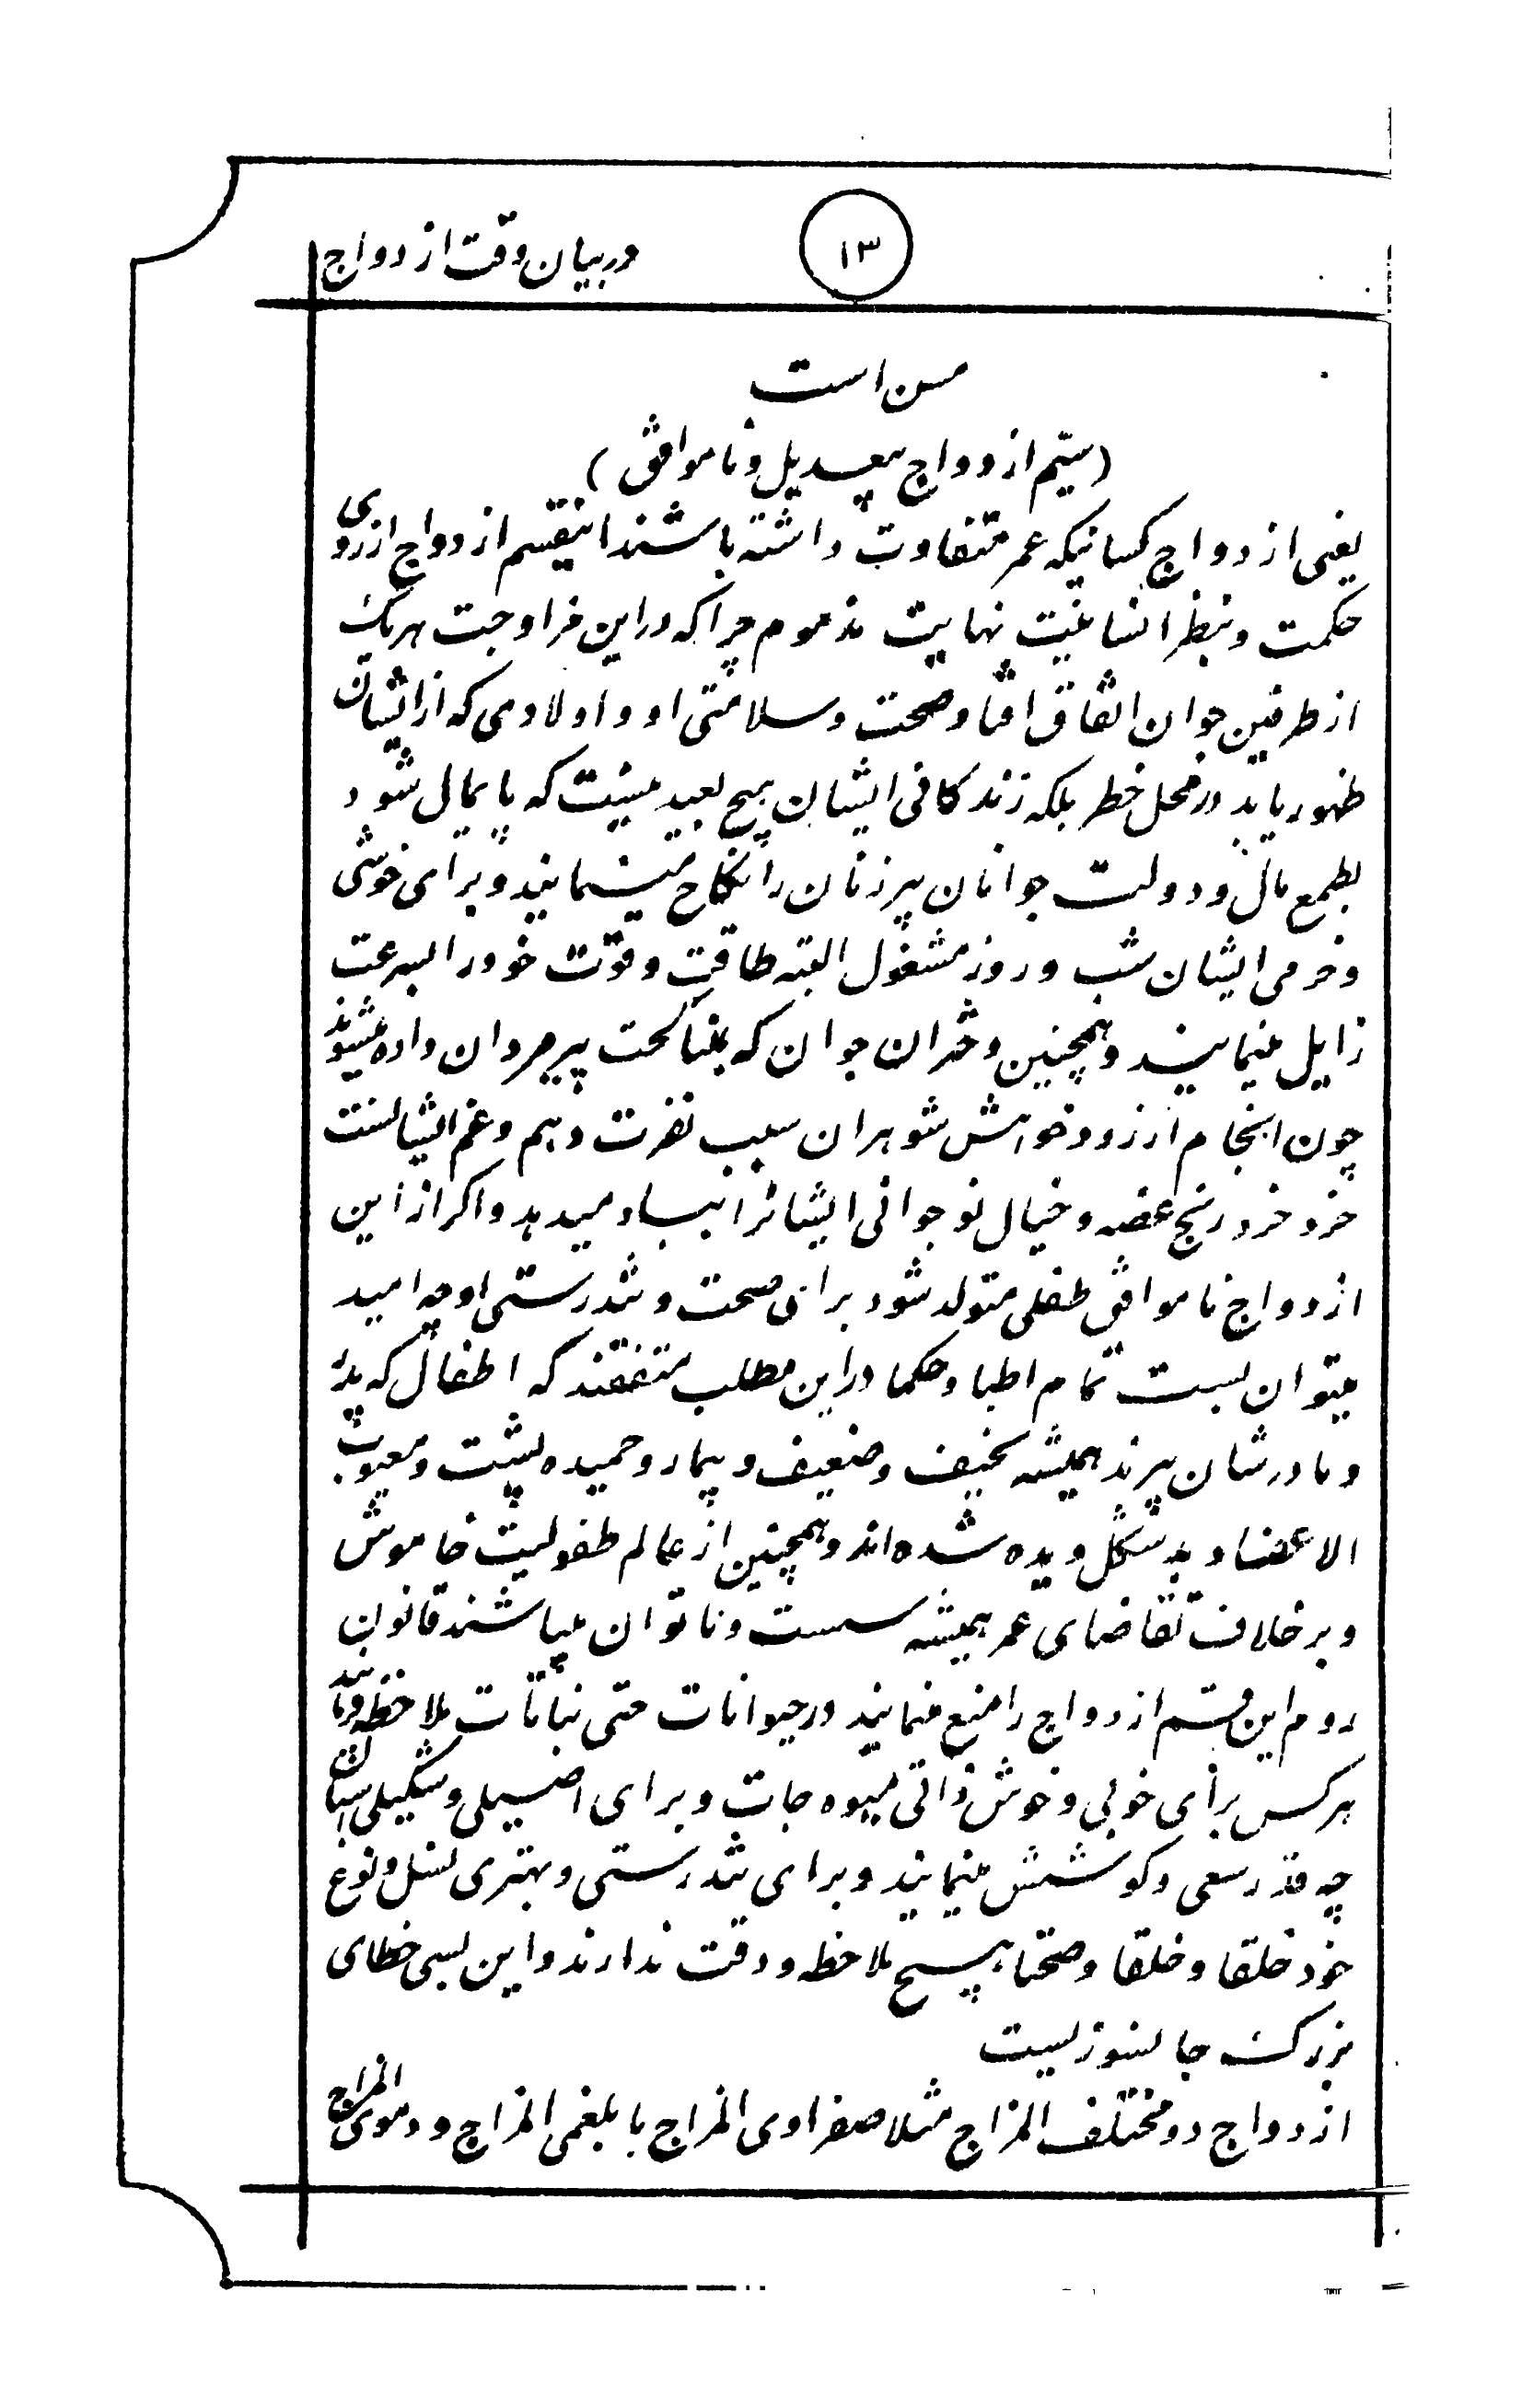 در بیان وقت ازدواج
۱۳
مسن است
(سیّم ازدواج بیعدیل و ناموافق)
یعنی ازدواج کسانیکه عمر متفاوت داشته باشند اینقسم ازدواج از روی
حکمت و بنظر انسانیت نهایت مذموم چرا که در این مزاوجت هر یک
از طرفین جوان اتفاق افتاد صحت و سلامتی او و اولادی که از ایشان
ظهور یابد در محل خطر بلکه زندکانی ایشان هیچ بعید نیست که پایمال شود
بطمع مال و دولت جوانان پیر زنان را نکاح مینمایند و برای خوشی
و خرمی ایشان شب و روز مشغول البته طاقت و قوّت خود را بسرعت
زایل مینمایند و همچنین دختران جوان که بمناکحت پیر مردان داده میشوند
چون انجام آرزو و خواهش شوهران سبب نفرت و هم و غم ایشانست
خرد خرد رنج غصه و خیال نوجوانی ایشانرا بباد میدهد و اکر از این
ازدواج ناموافق طفلی متولد شود برای صحت و تندرستی او چه امید
میتوان بست تمام اطبا و حکما در این مطلب متفقند که اطفال که پدر
و مادرشان پیرند همیشه نحیف و ضعیف و بیمار و خمیده پشت و معیوب
الاعضا و بد شکل دیده شده‌اند و همچنین از عالم طفولیت خاموش
و بر خلاف تقاضای عمر همیشه سست و ناتوان میباشند قانون
روم این قسم ازدواج را منع مینمایند در حیوانات حتی نباتات ملاحظه فرمایند
هر کس برای خوبی و خوش ذاتی میوه جات و برای اصیلی و شکیلی اسبان
چه قدر سعی و کوشش مینمایند و برای تندرستی و بهتری نسل و نوع
خود خلقا و خلقا و صحتا هیچ ملاحظه و دقت ندارند و این بسی خطای
بزرک جانسوزیست
ازدواج دو مختلف المزاج مثلا صفراوی المزاج با بلغمی المزاج و دموی المزاج